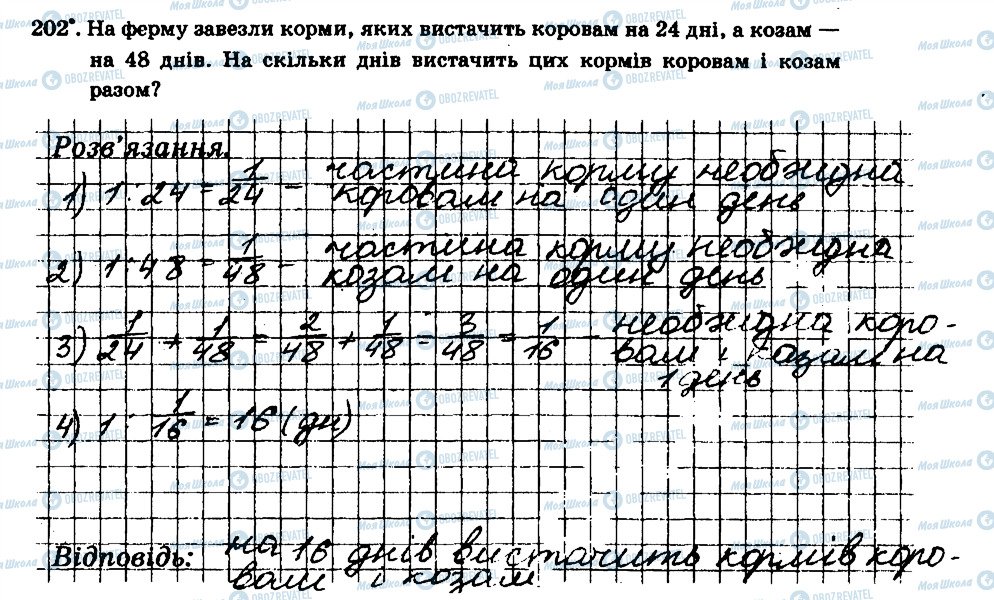 202°. На ферму завезли корми, яких вистачить коровам на 24 дні, а козам —
на 48 днів. На скільки днів вистачить цих кормів коровам і козам
разом?
Розв'язання.
1) 1 : 24 = 1/24 - частина корму необхідна
коровам на один день
2) 1 : 48 = 1/48 - частина корму необхідна
козам на один день
3) 1/24 + 1/48 = 2/48 + 1/48 = 3/48 = 1/16 - необхідна коро-
вам і козам на
1 день
4) 1 : 1/16 = 16 (дн)
Відповідь: на 16 днів вистачить кормів коро-
вам і козам